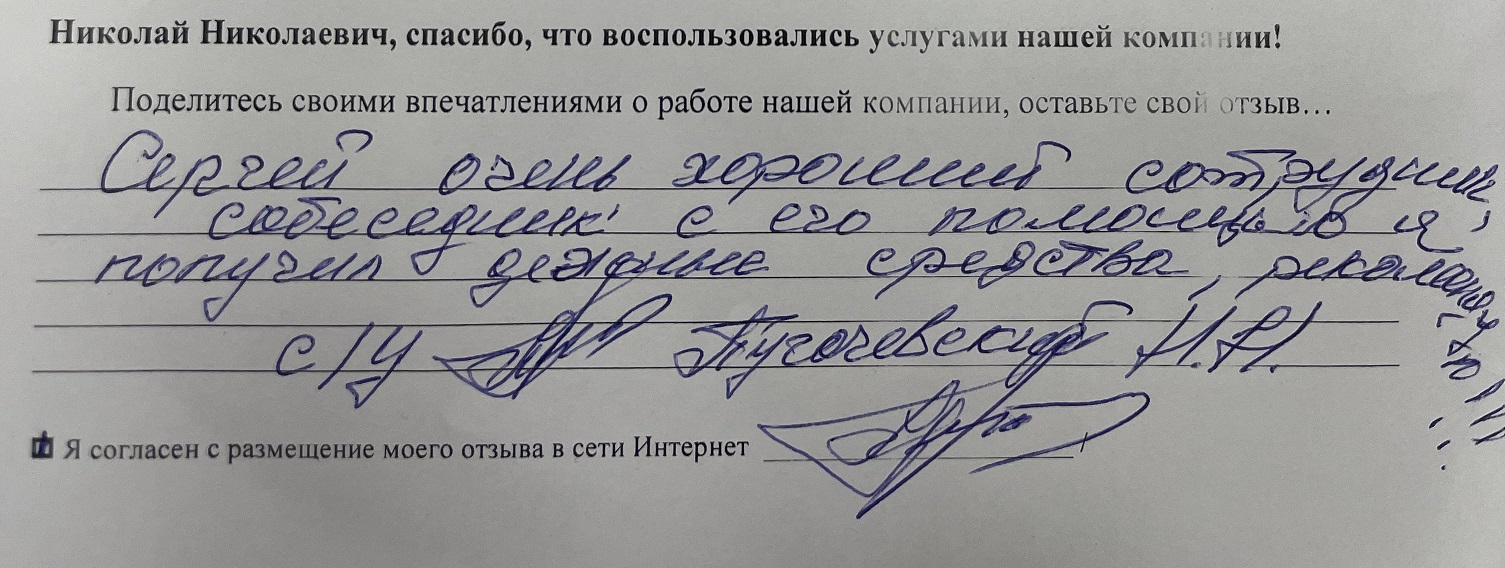 Николай Николаевич, спасибо, что воспользовались услугами нашей компании!
Поделитесь своими впечатлениями о работе нашей компании, оставьте свой отзыв…
Сергей очень хороший сотрудник,
собеседник с его помощью я
получил денежные средства, рекомендую!!!
с/у Пугачевский Н.Н.
Я согласен с размещение моего отзыва в сети Интернет